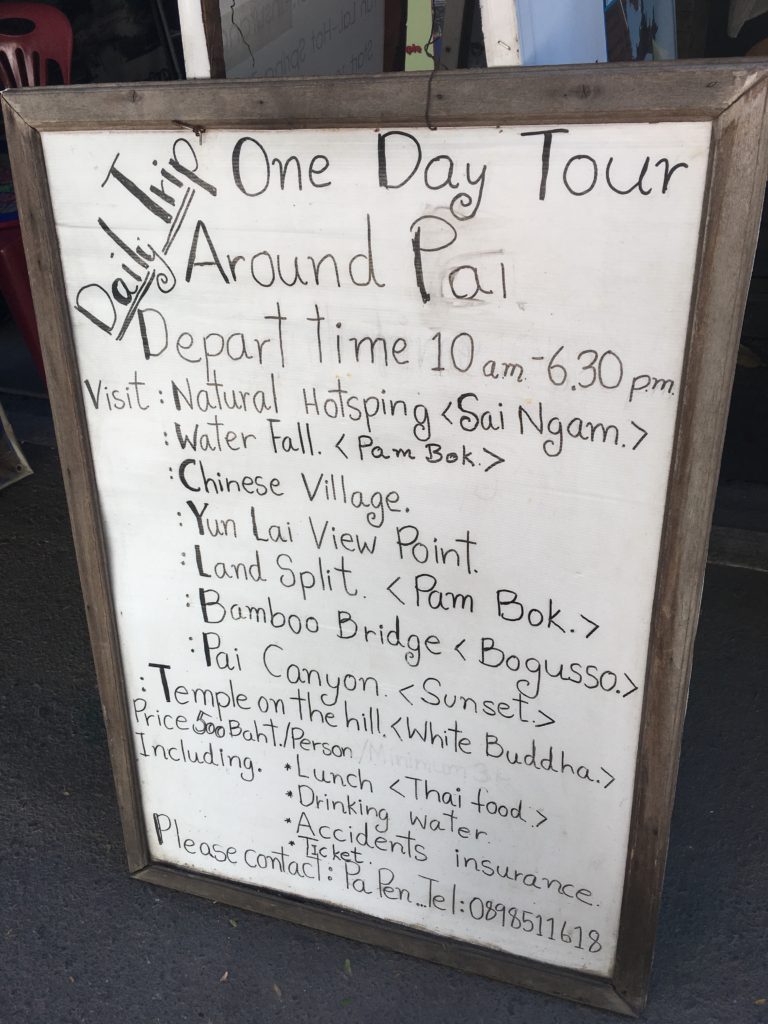 Daily Trip
One Day Tour
Around Pai
Depart time 10 am - 6.30 p.m.
Visit : Natural Hotsping <Sai Ngam.>
: Water Fall. <Pam Bok.>
: Chinese Village.
: Yun Lai View Point.
: Land Split. <Pam Bok.>
: Bamboo Bridge <Bogusso.>
: Pai Canyon. <Sunset.>
: Temple on the hill. <White Buddha.>
Price 500 Baht./Person /Minimum 3
Including. * Lunch <Thai food.>
* Drinking water.
* Accidents insurance.
* Ticket.
Please contact : Pa Pen...Tel : 0898511618